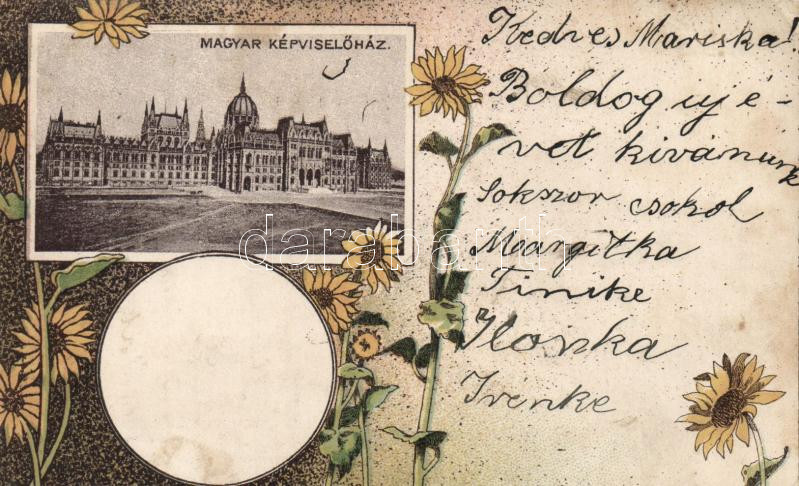 MAGYAR KÉPVISELŐHÁZ.
Kedves Mariska!
Boldog uj é-
vet kivánunk
Sokszor csokol
Margitka
Tinike
Ilonka
Irénke
darabanth